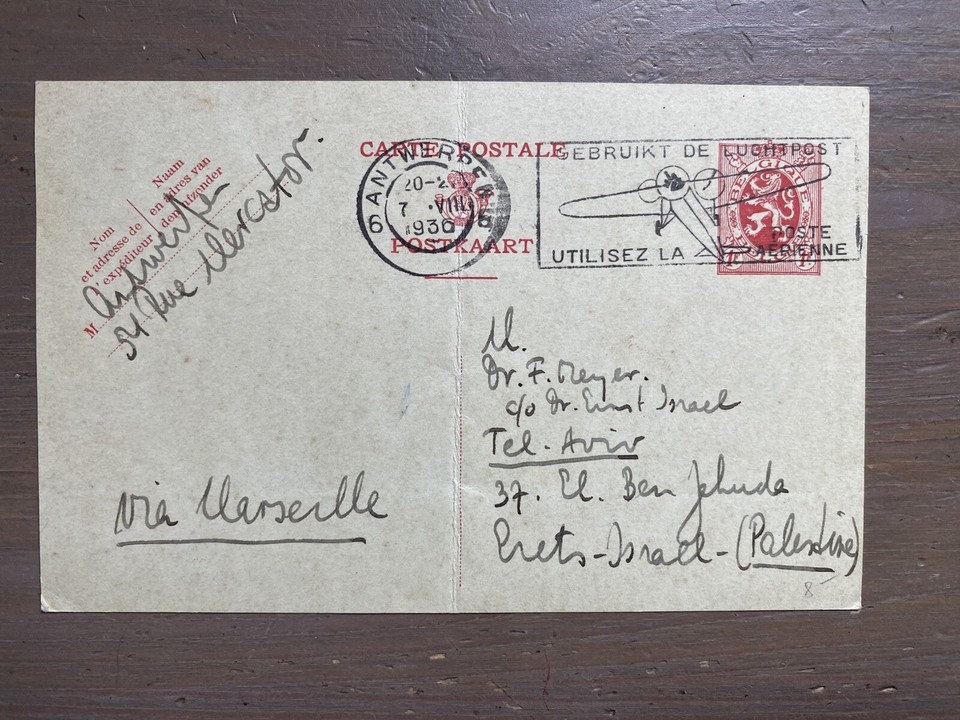 CARTE POSTALE
POSTKAART
Nom
et adresse de
l'expéditeur
Naam
en adres van
den afzender
M. Antwerpen
54 Rue Mercator.
6 ANTWERPEN 6
20-2
7 VIII
1936
GEBRUIKT DE LUCHTPOST
UTILISEZ LA POSTE
AERIENNE
BELGIQUE
M.
Dr. F. Meyer.
c/o Dr. Ernst Israel
Tel-Aviv
37. El. Ben Jehuda
Erets-Israel-(Palestine)
via Marseille
8